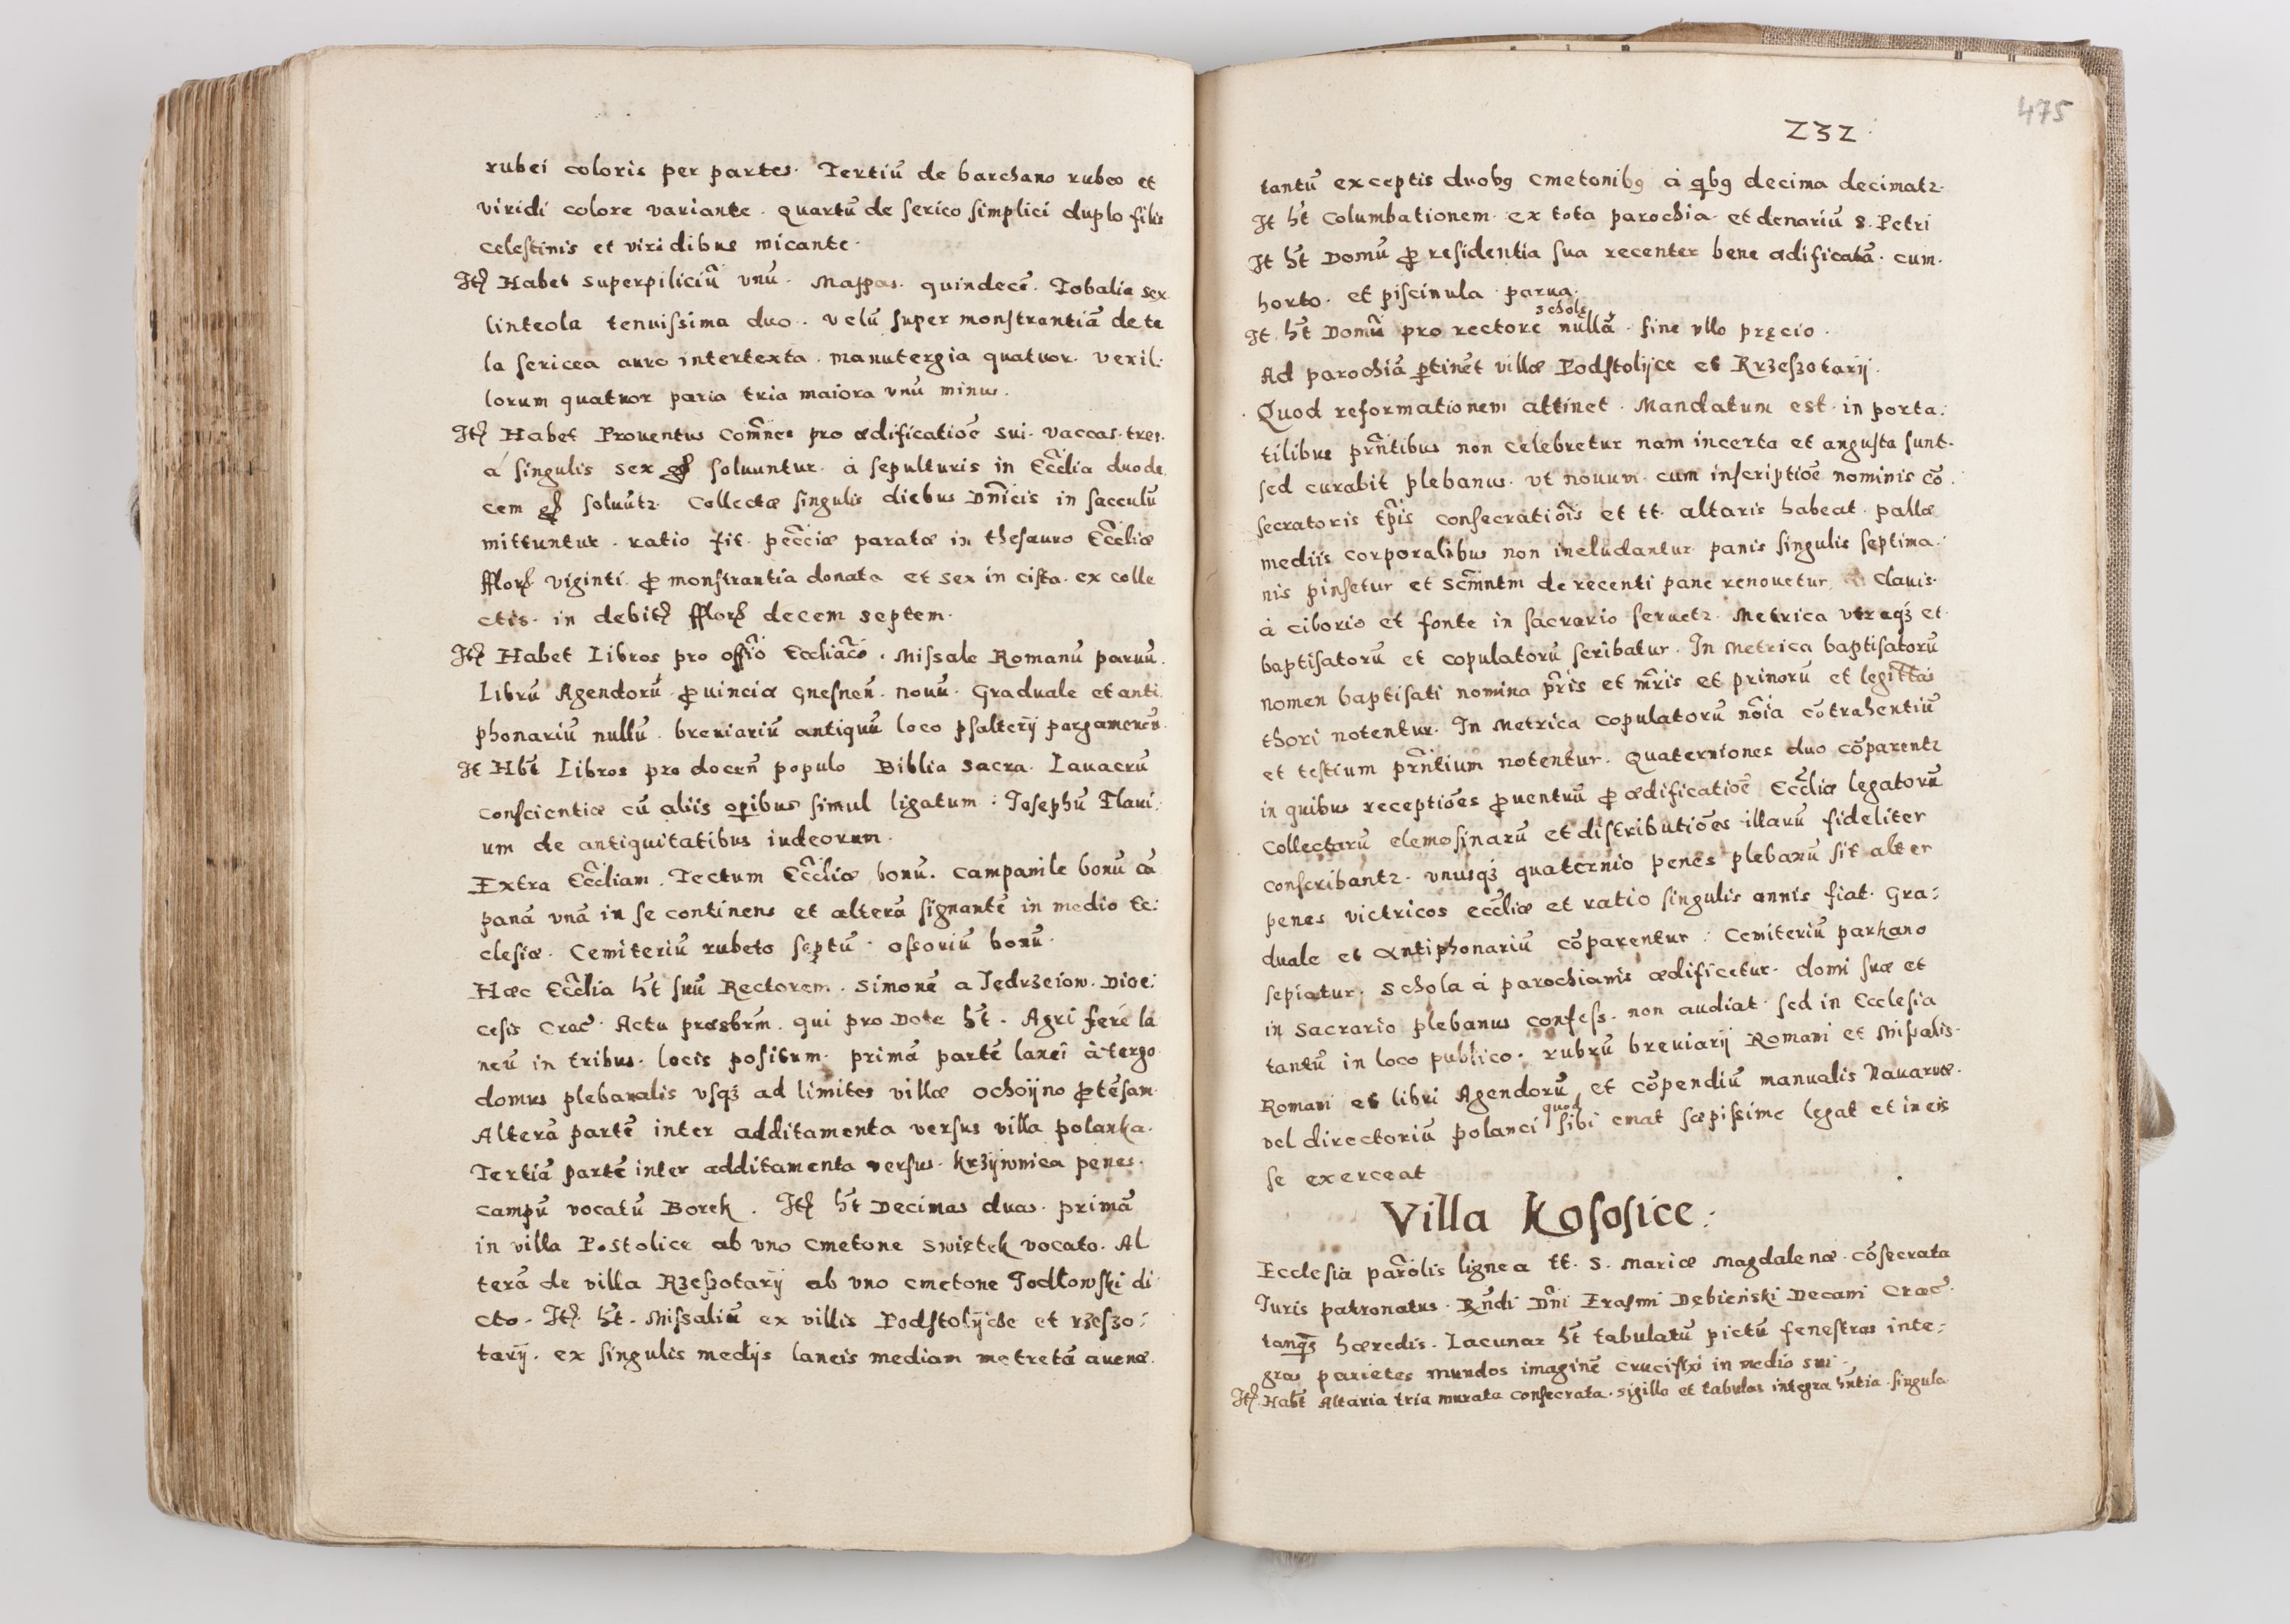 rubei coloris per partes. Tertiū de barchano rubeo et
viridi colore variante. quartū de serico simplici duplo filis
celestinis et viridibus micante.
Itē Habet superpiliciū vnū. Mappas. quindecē. Tobalia sex
linteola tenuissima duo. velū super monstrantiā de te
la sericea auro intertexta. manutergia quatuor. vexil:
lorum quatuor paria tria maiora vnū minus.
Itē Habet Prouentus Com̄nes pro ædificatiōe sui. vaccas. tres.
á singulis sex gr̃ soluuntur. à sepulturis in Ecc̃lia duode
cem gr̃ soluūt2. Collectæ singulis diebus Dn̄icis in sacculū
mittuntur. ratio fit. pecc̃iæ paratæ in thesauro Ecc̃liæ
fflor̃ viginti. ꝓ monstrantia donata et sex in cista. ex colle
ctis. in debitꝭ fflor̃ decem septem.
Itē Habet Libros pro offō Eccliaco. Missale Romanū paruū.
Librū Agendorū ꝓuinciæ Gnesneñ. nouū. Graduale et anti
phonariū nullū. breuiariū antiquū loco psalterij pargameneū.
It Hb̃t Libros pro doceñ populo Biblia sacra. Lauacrū
conscientiæ cū aliis opibus simul ligatum: Iosephū Flaui:
um de antiquitatibus iudeorum.
Extra Ecc̃liam. Tectum Ecc̃liæ bonū. campanile bonū cā
panā vnā in se continens et alterā signantē in medio Ec:
clesiæ. Cemiteriū rubeto septū. ossoriū bonū.
Hæc Ecc̃lia h̃t suū Rectorem. Simonē a Jędrzeiow. Dioe:
cesis Crac̃. Actu præsbr̄m. qui pro Dote h̃t. Agri ferè la
neū in tribus. locis positum. primā partē laneī à tergo
domus plebanalis vsqꝫ ad limites villæ ochoÿno ꝓtēsam.
Alterā partē inter additamenta versus villā polanka.
Tertiā partē inter additamenta versus. krzÿwnica penes.
campū vocatū Borek. Itē h̃t Decimas duas. primā
in villa Postolice ab vno cmetone swiętek vocato. Al
terā de villa Rzeszotarÿ ab vno cmetone Jodłowski di
cto. Itē. h̃t. Missaliū ex villis Podstolÿcze et rzeszo:
tarÿ. ex singulis medijs laneis mediam metretā auenæ.
475
232.
tantū exceptis duobꝯ cmetonibꝯ à qbꝯ decima decimat2.
It h̃t Columbationem. ex tota parochia. et denariū S. Petri
It h̃t Domū ꝓ residentia sua recenter bene ædificatā. cum.
horto. et piscinula parua.
scholę
It. h̃t Domū pro rectore nullā. sine vllo pręcio.
Ad parochiā ꝑtinēt villæ Podstolÿce et Krzeszotarÿ.
Quod reformationem attinet. Mandatum est. in porta:
tilibus prñtibus non celebretur nam incerta et angusta sunt.
sed curabit plebanus. vt nouum. cum inscriptiōe nominis cō
secratoris tp̃is consecratiōis et tt. altaris habeat. pallæ
mediis corporalibus non includantur panis singulis septima:
nis pinsetur et Scm̄ntm de recenti pane renouetur. Clauis.
à ciborio et fonte in sacrario seruet2. Metrica vtraqꝫ et
baptisatorū et copulatorū scribatur. In Metrica baptisatorū
nomen baptisati nomina pr̃is et mr̃is et prinorū et legittĩs
thori notentur. In Metrica copulatorū nõia cōtrahentiū
et testium prñtium notentur. Quaterniones duo cōparent2
in quibus receptiōes ꝓuentuū ꝓ ædificatiōe Ecc̃liæ legatorū
Collectarū elemosinarū et distributiōes illarū fideliter
conscribant2. vnusqꝫ quaternio penes plebanū sit alter
penes victricos ecc̃liæ et ratio singulis annis fiat. Gra:
duale et Antiphonariū cōparentur: Cemiteriū parkano
sepiatur. Schola à parochianis ædificetur. domi suæ et
in sacrario plebanus confess. non audiat. sed in Ecclesia
tantū in loco publico. rubrū breuiarij Romani et Missalis.
Romani et libri Agendorū et cōpendiū manualis Nauarræ.
quod
vel directoriū polanci sibi emat sæpissime legat et in eis
se exerceat
Villa Kososice:
Ecclesia parõlis lignea tt. S. Mariæ Magdalenæ. cōsecrata
Iuris patronatus. Rñdi Dñi Erasmi Dębieński Decani Crac̃.
tanqꝫ hæredis. Lacunar h̃t tabulatū pictū fenestras inte:
gras parietes mundos imaginē crucifixi in medio sui.
Itē. Hab̃t Altaria tria murata consecrata. sigilla et tabulas integra hñtia. singula